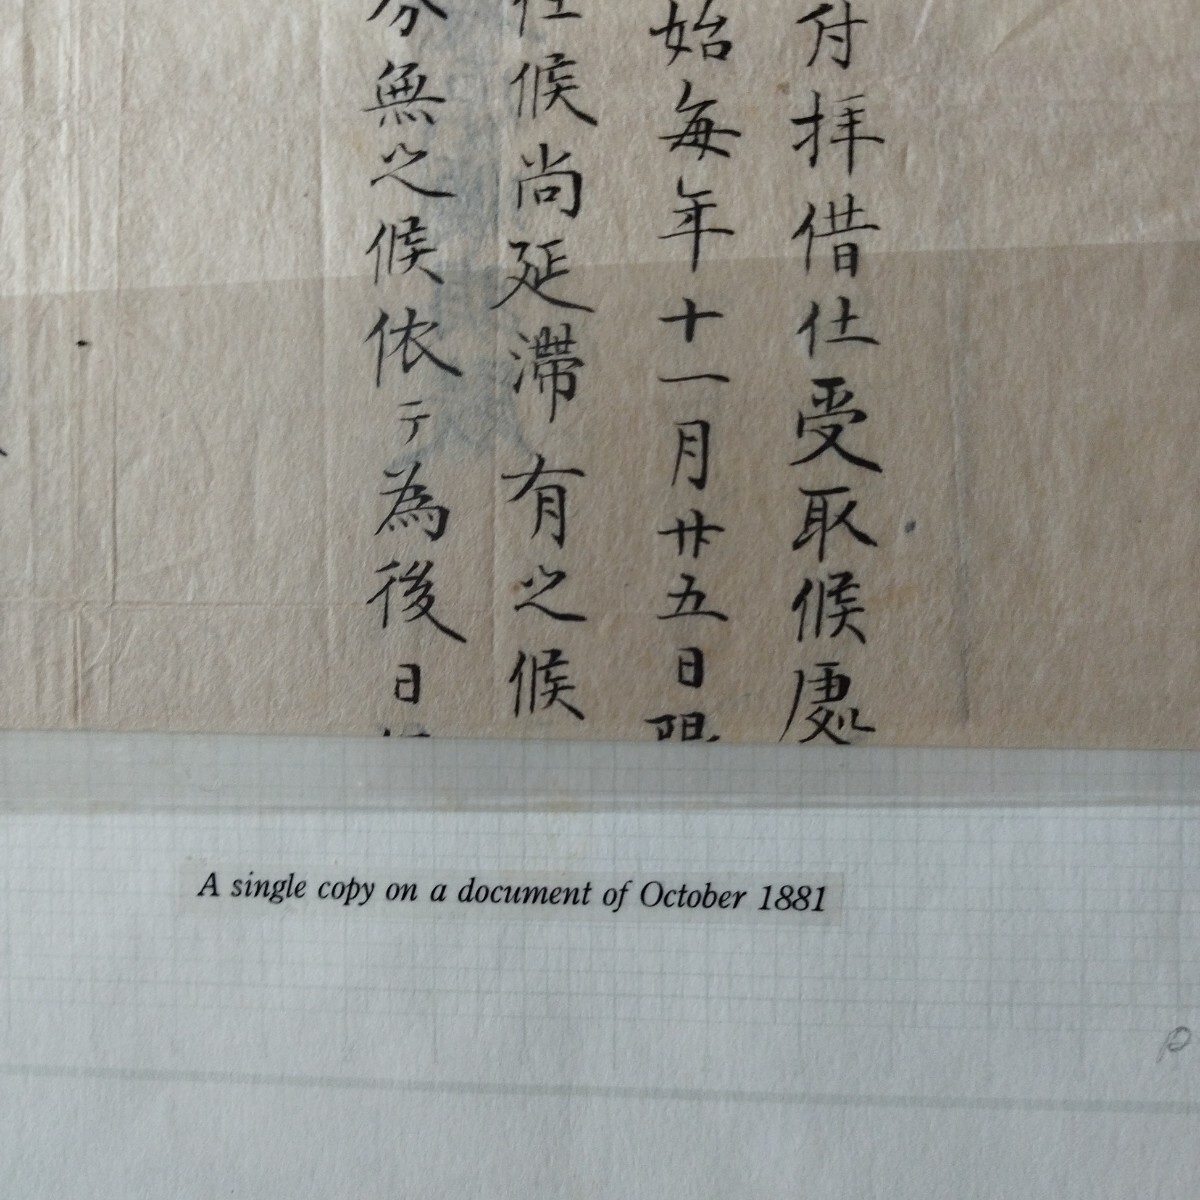 付拝借仕受取候處
始毎年十一月廿五日限
仕候尚延滞有之候
分無之候依テ為後日
A single copy on a document of October 1881